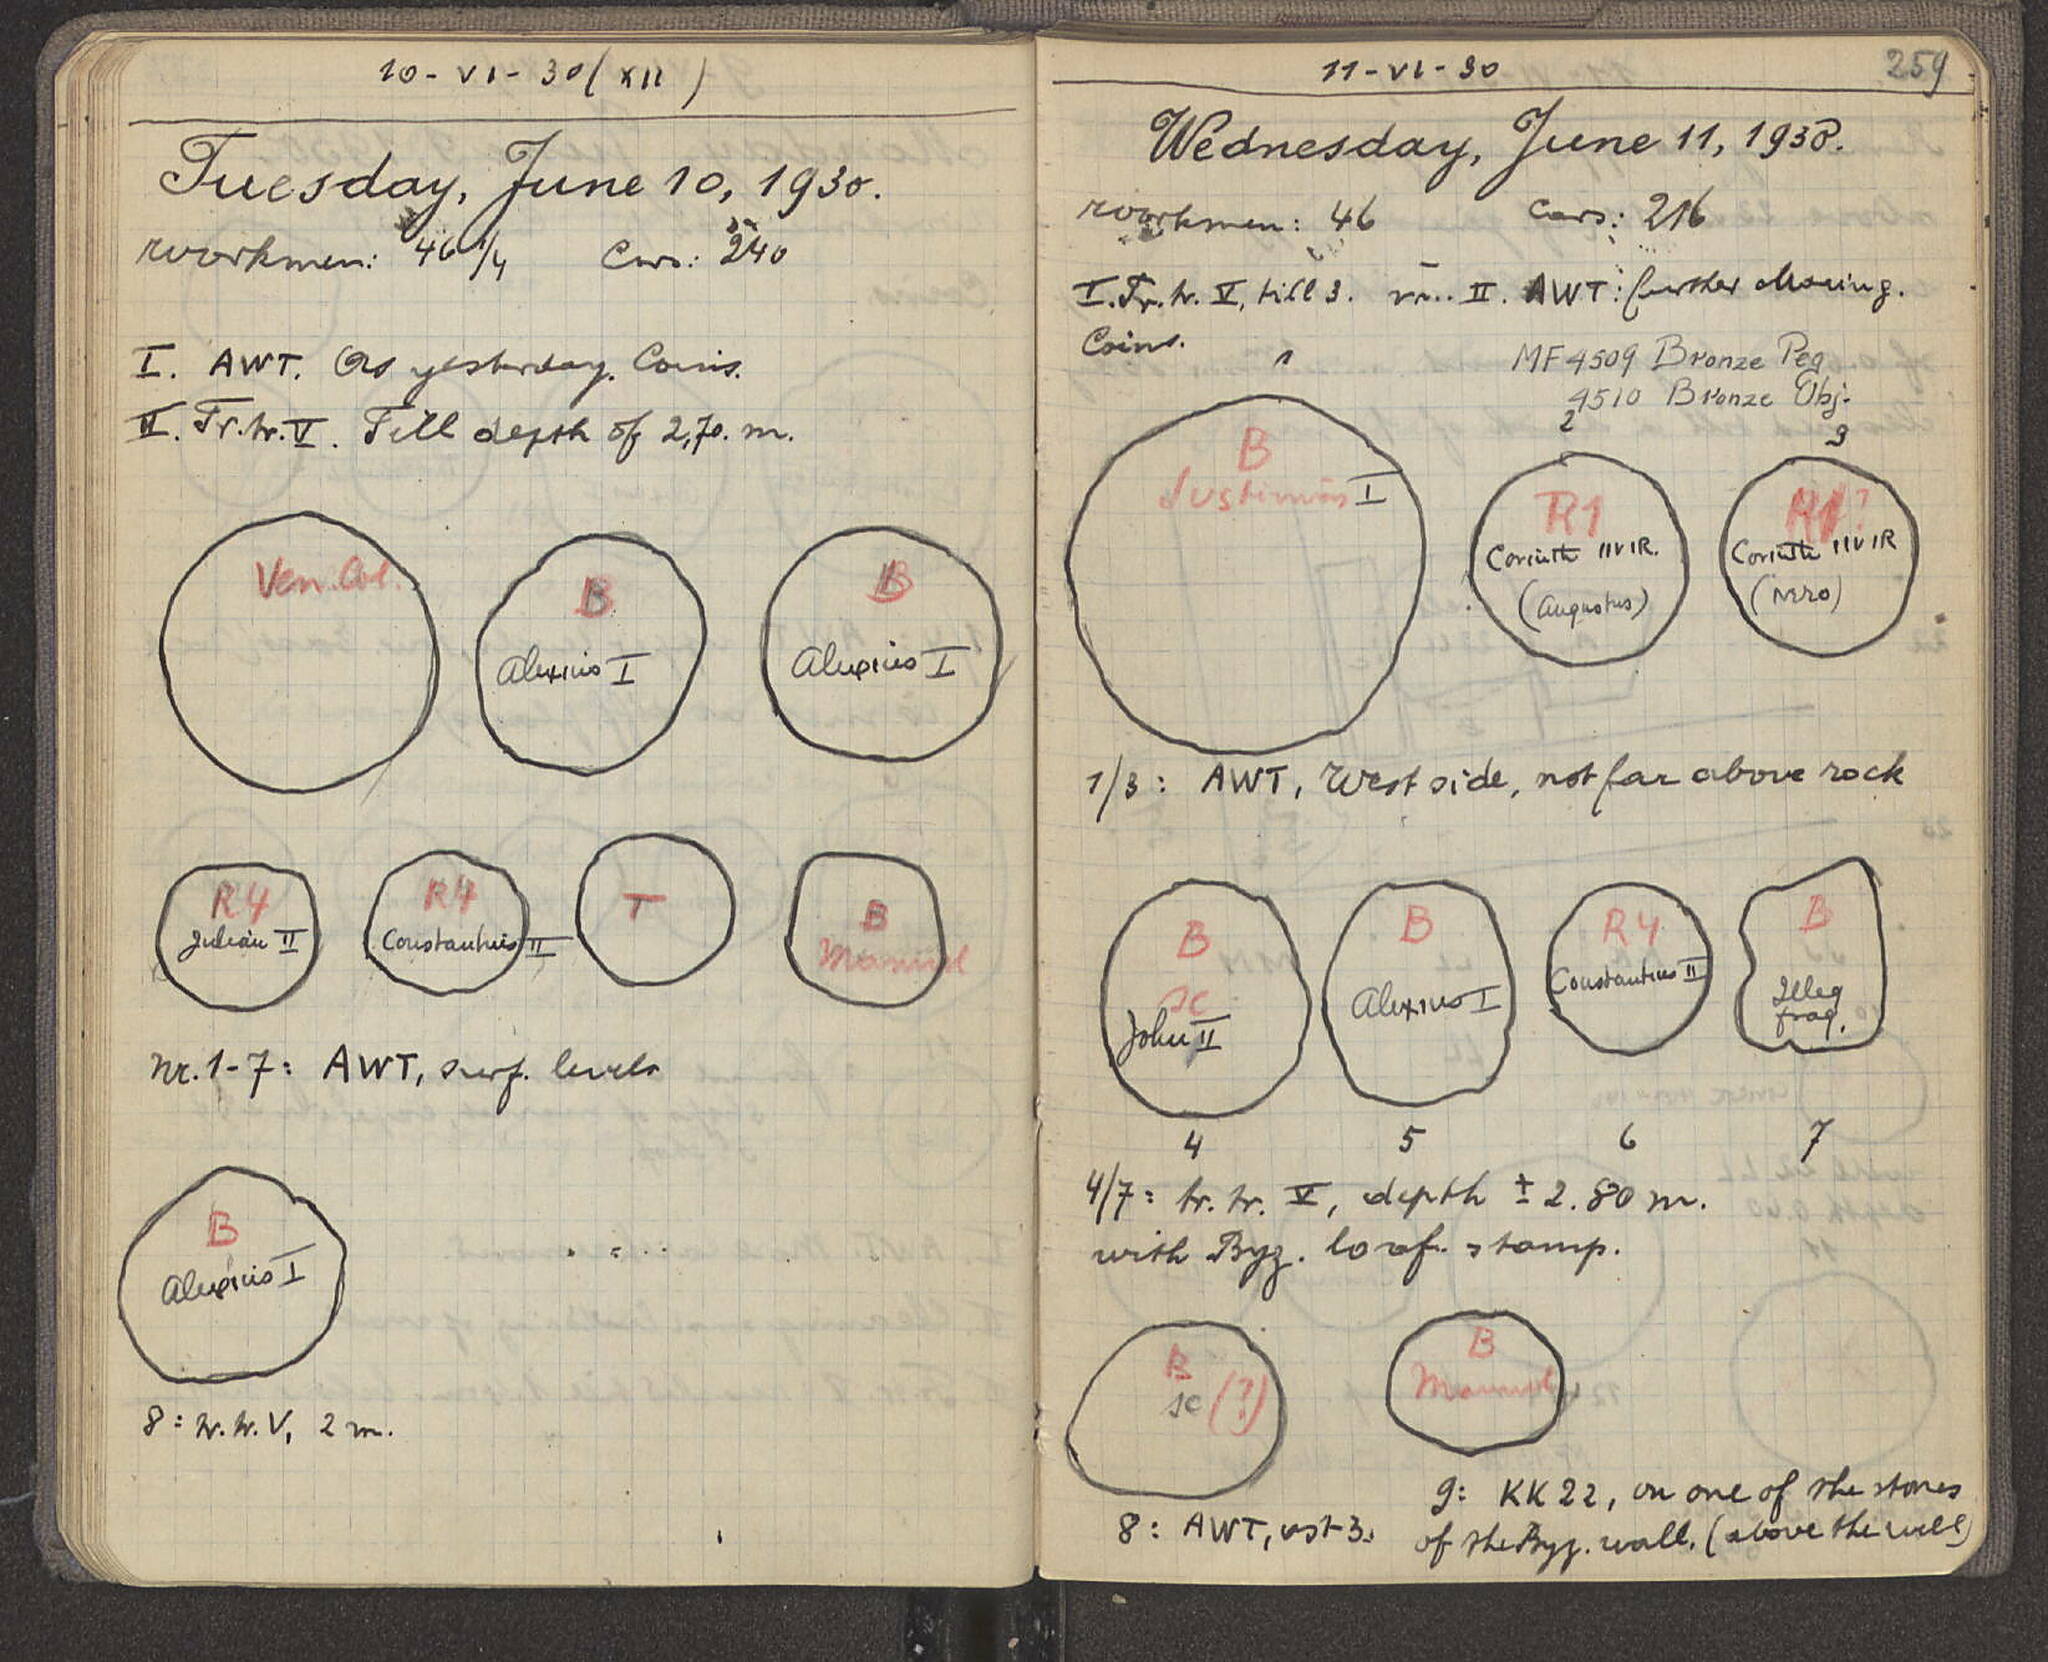 10-VI-30 (XII)
Tuesday, June 10, 1930.
Workmen: 46 1/4 Cars: 240
I. AWT. As yesterday. Coins.
II. Tr.tr. V. Till depth of 2,70. m.
Ven. Col.
B
Alexius I
B
Alexius I
R4
Julian II
R4
Constantius II
T
B
Manuel
Nr. 1-7: AWT, surf. levels
B
Alexius I
8: tr. tr. V, 2 m.
11-VI-30
259
Wednesday, June 11, 1930.
Workmen: 46 Cars: 216
I. Tr. tr. V, till 3. II. AWT: further clearing.
Coins.
MF 4509 Bronze Peg
4510 Bronze Obj.
1
2
3
B
Justinus I
R1
Corinth IIVIR.
(Augustus)
R1?
Corinth IIVIR
(Nero)
1/3: AWT, West side, not far above rock
B
SC
John II
B
Alexius I
R4
Constantius II
B
Illeg
frag.
4
5
6
7
4/7: tr. tr. V, depth ± 2.80 m.
with Byz. loaf. stamp.
B
SC (?)
B
Manuel
8: AWT, ust 3.
9: KK 22, on one of the stones
of the Byz. wall. (above the well)